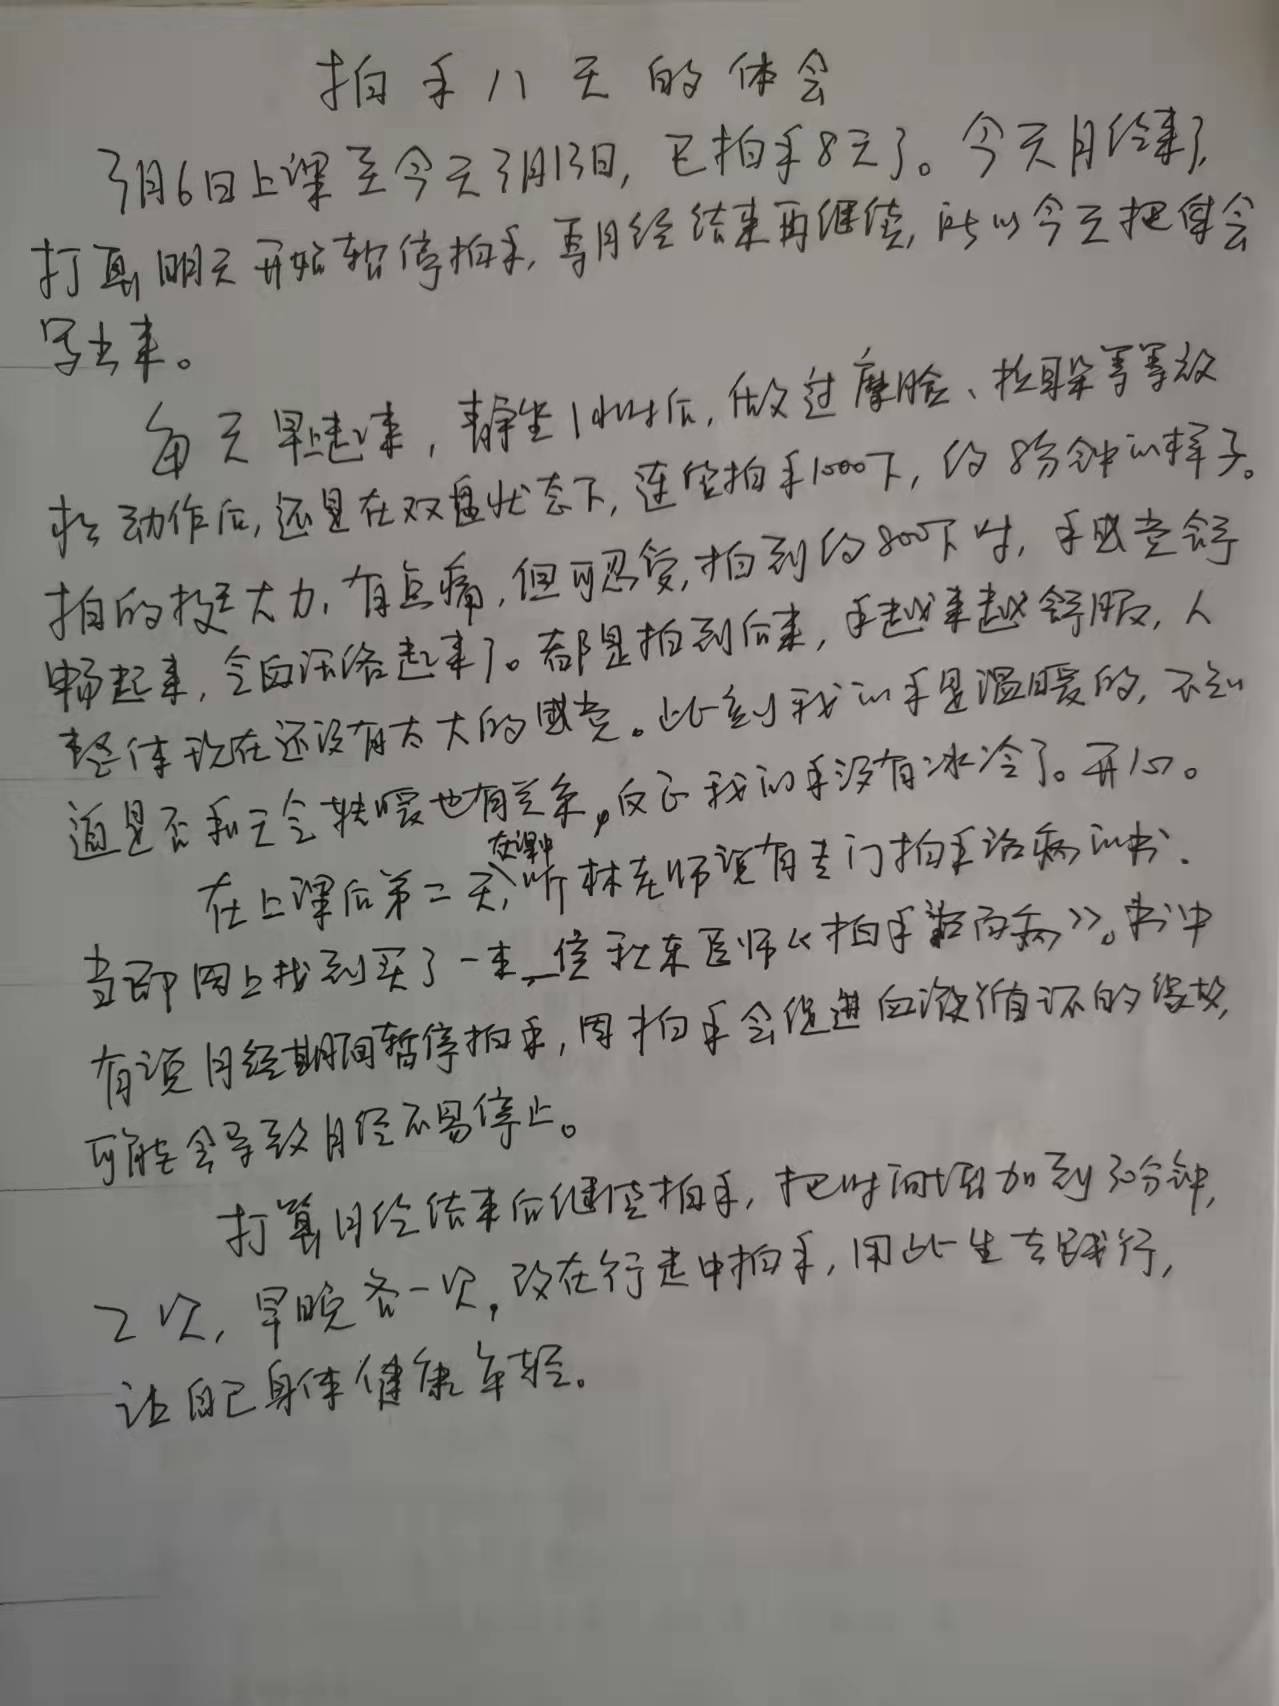 拍手八天的体会
3月6日上课至今天3月13日，已拍手8天了。今天月经来了，
打算明天开始暂停拍手，等月经结束再继续，所以今天把体会
写出来。
每天早上起来，静坐1小时后，做过摩脸、拉耳朵等等放
松动作后，还是在双盘状态下，连续拍手1000下，约8分钟的样子。
拍的较大力，有点痛，但可忍受，拍到约800下时，手感觉舒
畅起来，会血活络起来了。都是拍到后来，手越来越舒服，人
整体现在还没有太大的感觉。此刻我的手是温暖的，不知
道是否和天会转暖也有关系，反正我的手没有冰冷了。开心。
在上课后第二天，在课中听林老师说有专门拍手治病的书，
当即网上找到买了一本，侯秋东医师《拍手治百病》。书中
有说月经期间暂停拍手，因拍手会促进血液循环的缘故，
可能会导致月经不易停止。
打算月经结束后继续拍手，把时间增加到30分钟，
2次，早晚各一次，改在行走中拍手，用此生去践行，
让自己身体健康年轻。